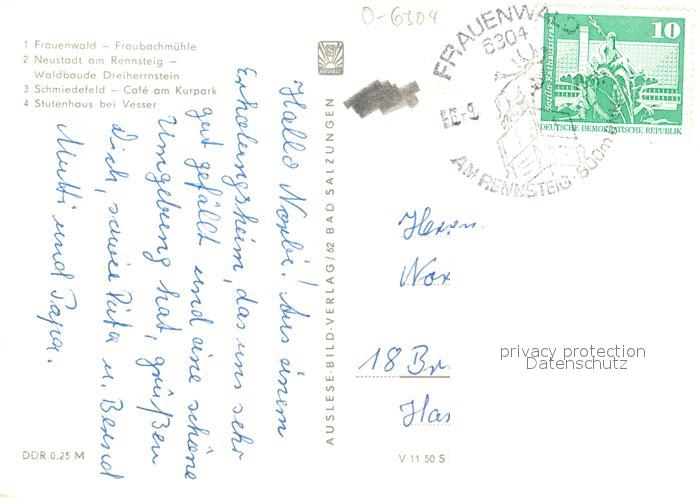 O-6304
1 Frauenwald – Fraubachmühle
2 Neustadt am Rennsteig –
Waldbaude Dreiherrnstein
3 Schmiedefeld – Café am Kurpark
4 Stutenhaus bei Vesser
Hallo Norbi! Aus einem
Erholungsheim, das uns sehr
gut gefällt und eine schöne
Umgebung hat, grüßen
Dich, sowie Rita u. Bernd
Mutti und Papa.
AUSLESE-BILD-VERLAG/62 BAD SALZUNGEN
AUSLESE
FRAUENWALD
6304
AM RENNSTEIG · 800m
10
Berlin, Rathausstraße
DEUTSCHE DEMOKRATISCHE REPUBLIK
Herrn
Nor
18 Br
Has
privacy protection
Datenschutz
DDR 0.25 M
V 11 50 S